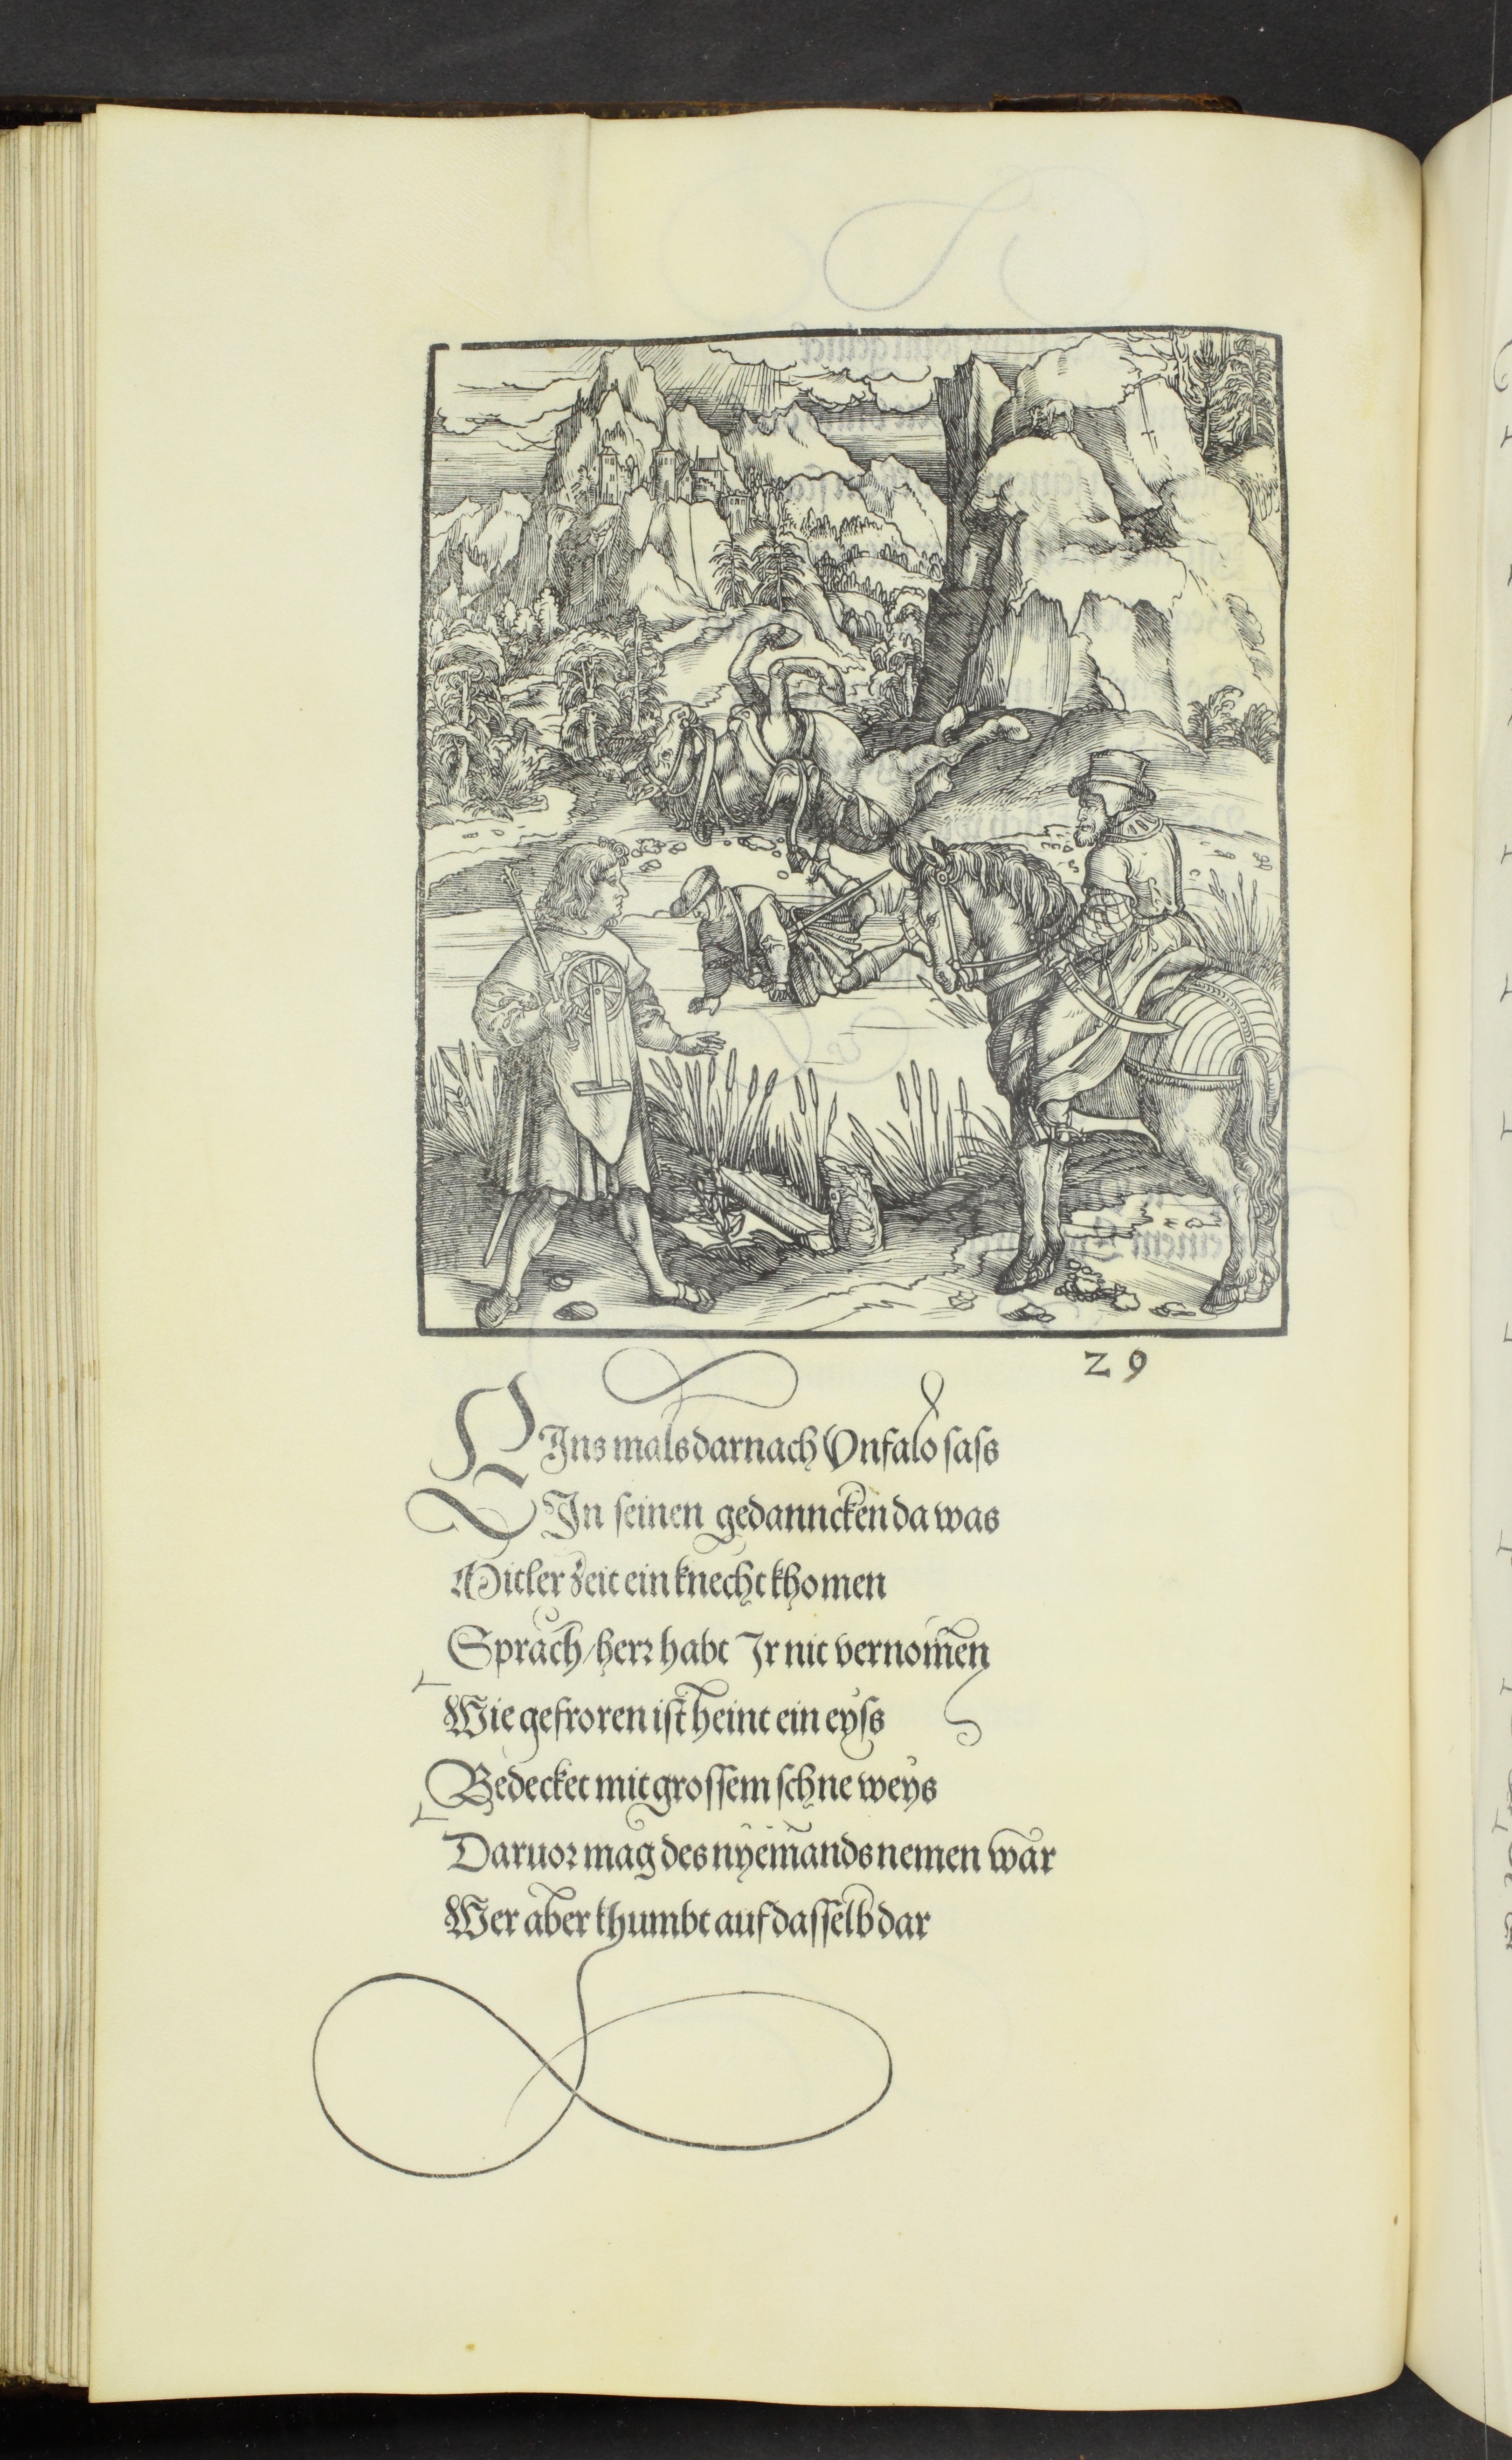 29
EIns mals darnach Vnfalo saſs
In ſeinen gedannckẽn da was
Mitler zeit ein knecht khomen
Sprach / herꝛ habt Ir nit vernom̃en
Wie gefroren iſt heint ein eyſs
Bedecket mit groſſem ſchne weyſs
Daruoꝛ mag des nyem̃ands nemen war
Wer aber khumbt auf daſſelb dar